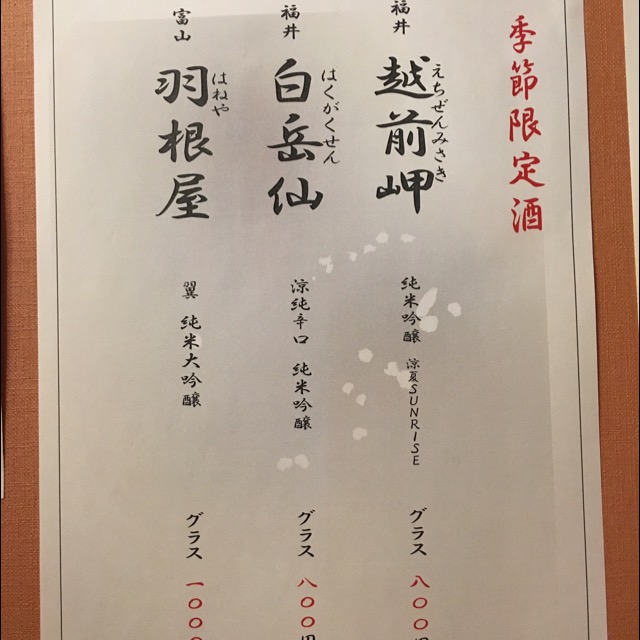 季節限定酒
福井
越前岬
えちぜんみさき
純米吟醸 涼夏SUNRISE
グラス 八〇〇円
福井
白岳仙
はくがくせん
涼純辛口 純米吟醸
グラス 八〇〇円
富山
羽根屋
はねや
翼 純米大吟醸
グラス 一〇〇〇